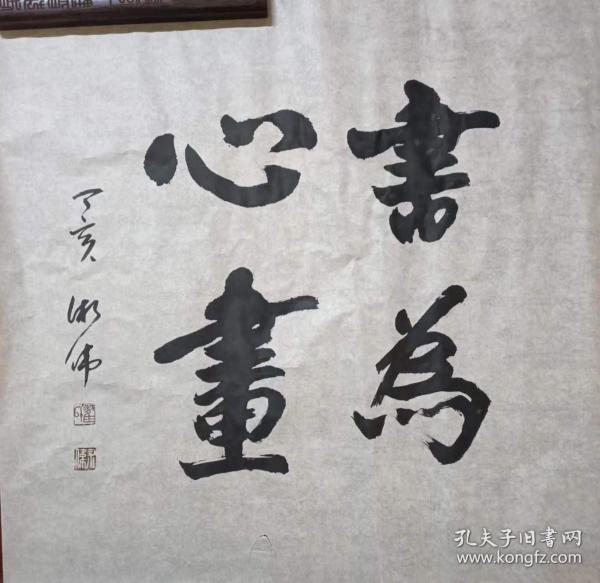 書為
心畫
丁亥
孔夫子旧书网
www.kongfz.com